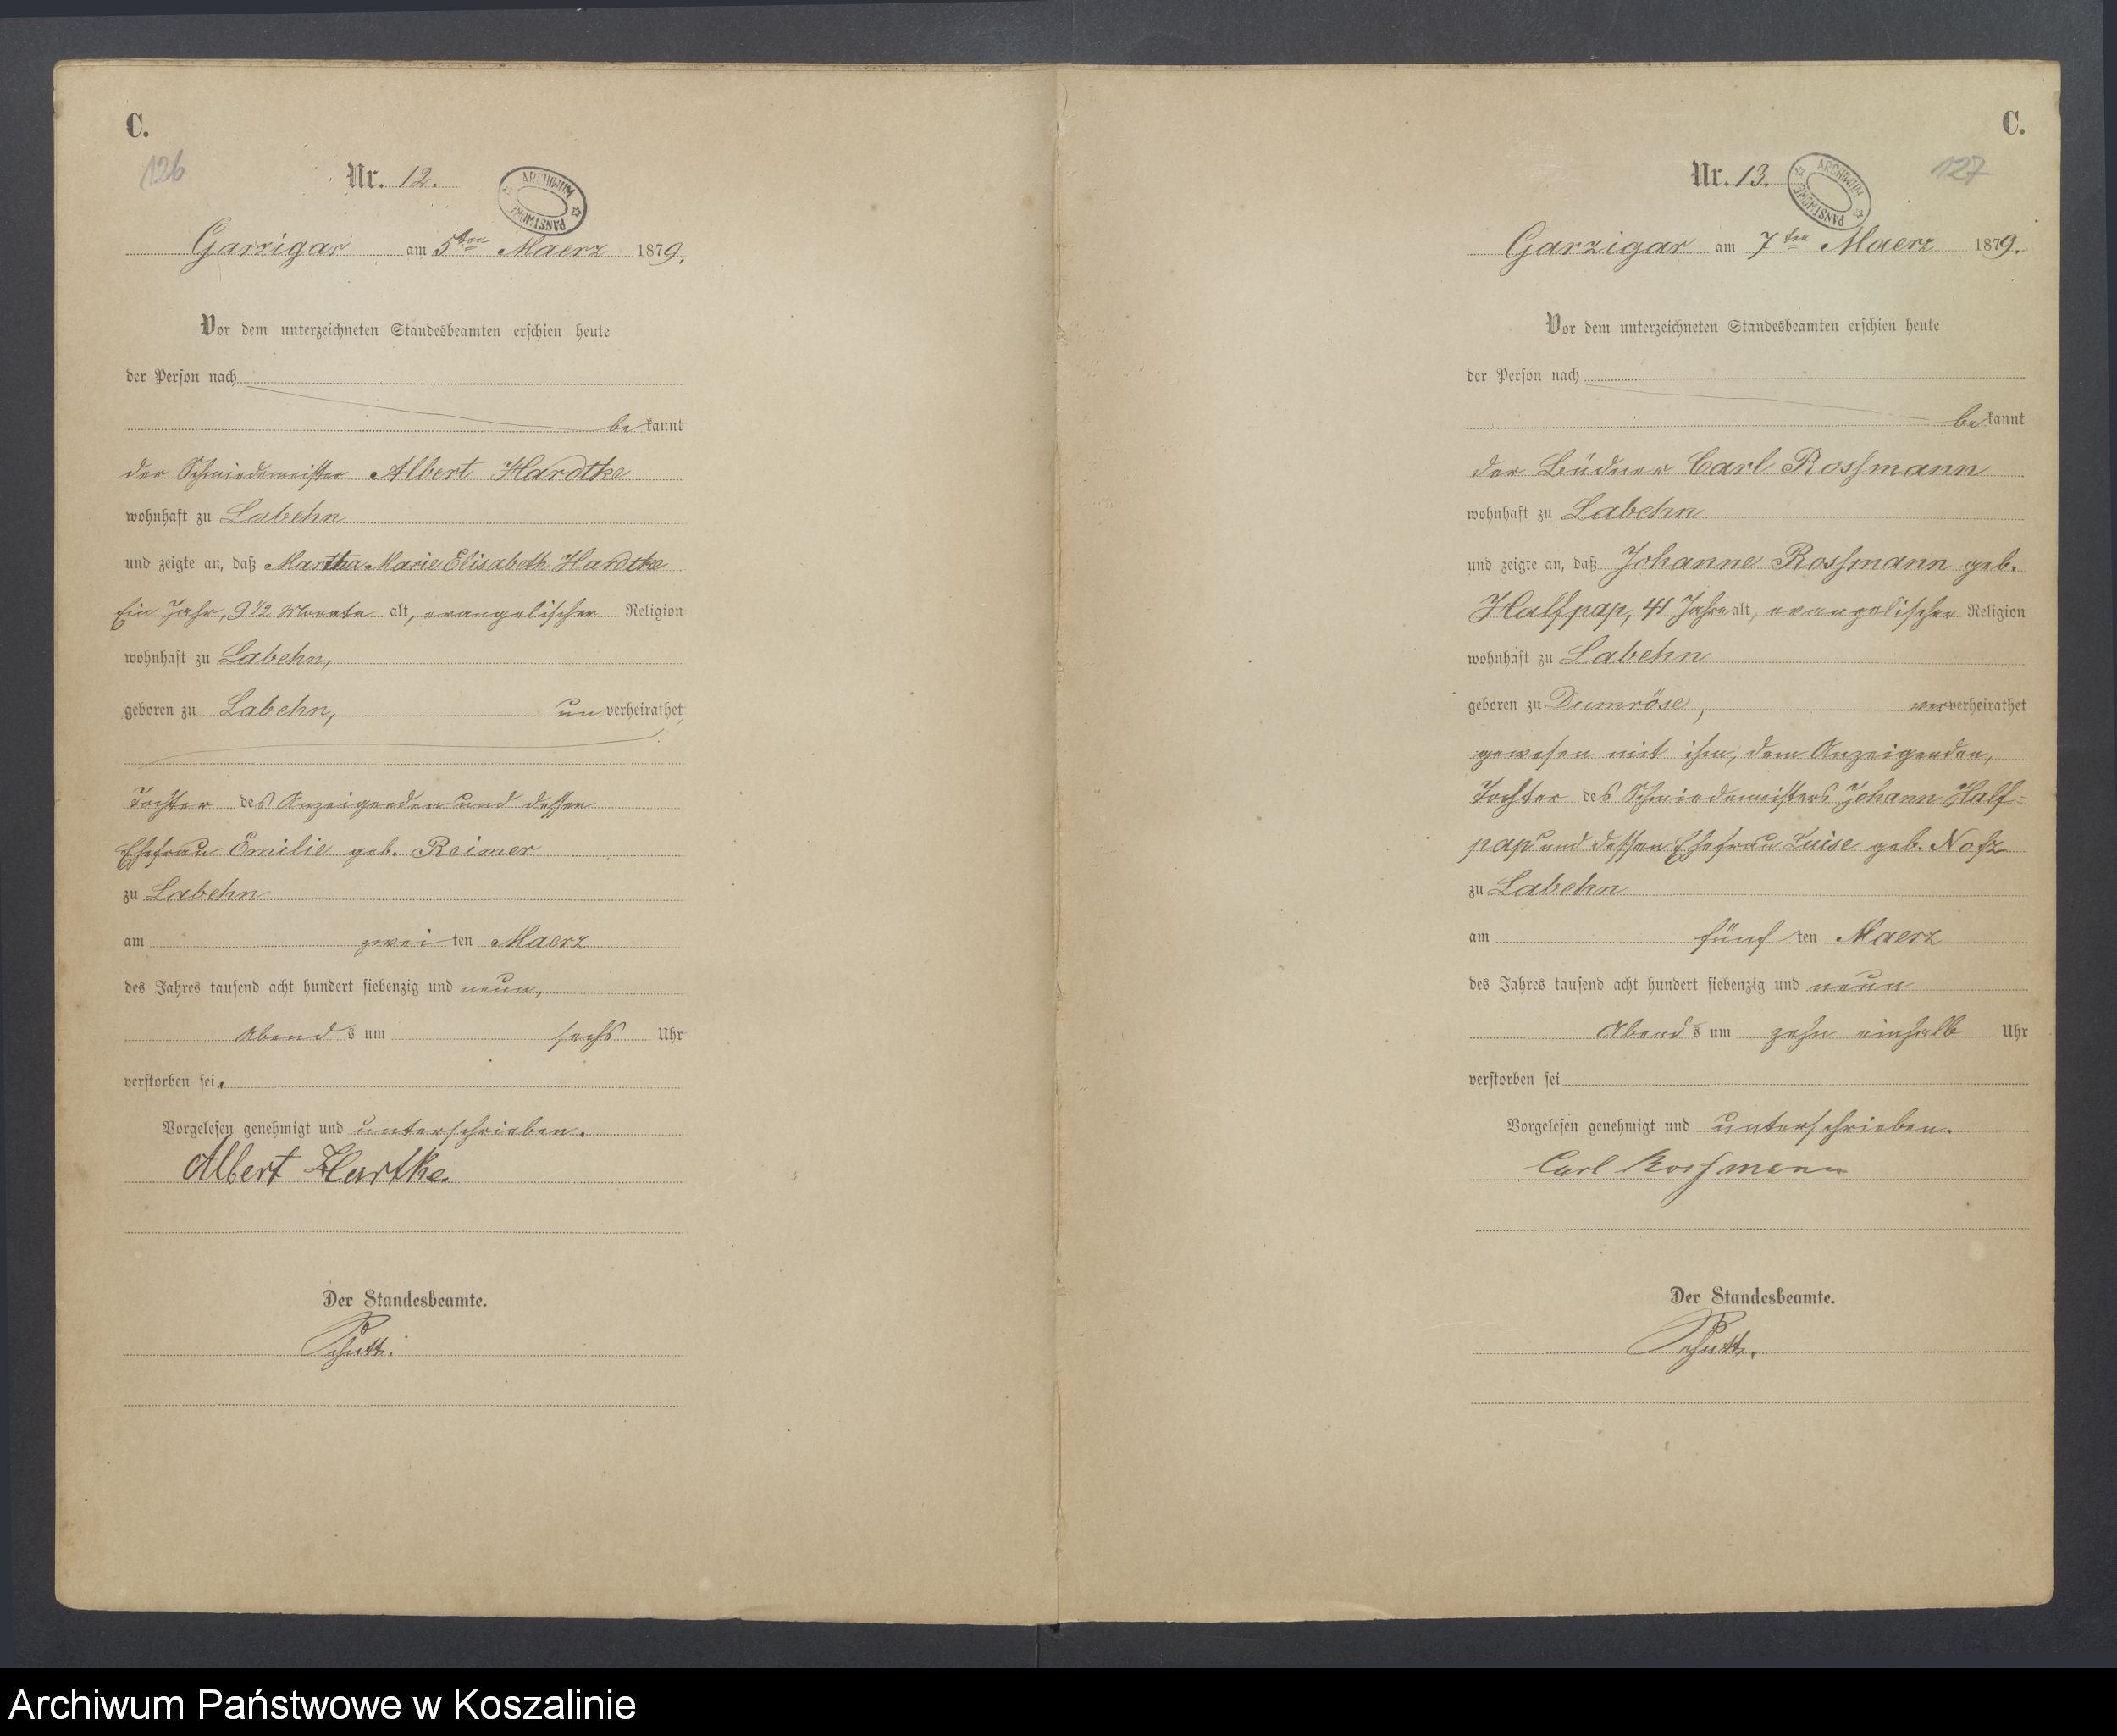 C.
126
Nr. 12.
ARCHIWUM PAŃSTWOWE
Garzigar am 5ten Maerz 1879.
Vor dem unterzeichneten Standesbeamten erschien heute
der Person nach
bekannt
der Schmiedemeister Albert Hardtke
wohnhaft zu Labehn
und zeigte an, daß Martha Marie Elisabeth Hardtke
Ein Jahr, 9 1/2 Monate alt, evangelischer Religion
wohnhaft zu Labehn,
geboren zu Labehn, unverheirathet,
Tochter des Anzeigenden und dessen
Ehefrau Emilie geb. Reimer
zu Labehn
am zweiten Maerz
des Jahres tausend acht hundert siebenzig und neun,
Abends um sechs Uhr
verstorben sei.
Vorgelesen genehmigt und unterschrieben.
Albert Hartke.
Der Standesbeamte.
C.
127
Nr. 13.
ARCHIWUM PAŃSTWOWE
Garzigar am 7ten Maerz 1879.
Vor dem unterzeichneten Standesbeamten erschien heute
der Person nach
bekannt
der Büdner Carl Rossmann
wohnhaft zu Labehn
und zeigte an, daß Johanne Rossmann geb.
Halfpap, 41 Jahre alt, evangelischer Religion
wohnhaft zu Labehn
geboren zu Dumröse, ververheirathet
gewesen mit ihm, dem Anzeigenden,
Tochter des Schmiedemeisters Johann Half-
pap und dessen Ehefrau Luise geb.
zu Labehn
am fünften Maerz
des Jahres tausend acht hundert siebenzig und neun
Abends um zehn einhalb Uhr
verstorben sei
Vorgelesen genehmigt und unterschrieben.
Carl Rossmann
Der Standesbeamte.
Archiwum Państwowe w Koszalinie